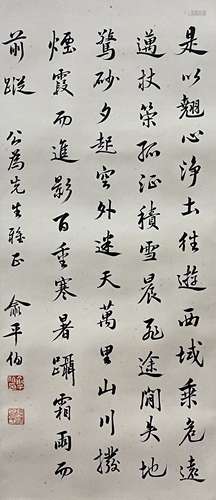 是以翹心淨土往遊西域乘危遠
邁杖策孤征積雪晨飛途閒失地
驚砂夕起空外迷天萬里山川撥
煙霞而進影百重寒暑躡霜雨而
前蹤
公為先生雅正 俞平伯